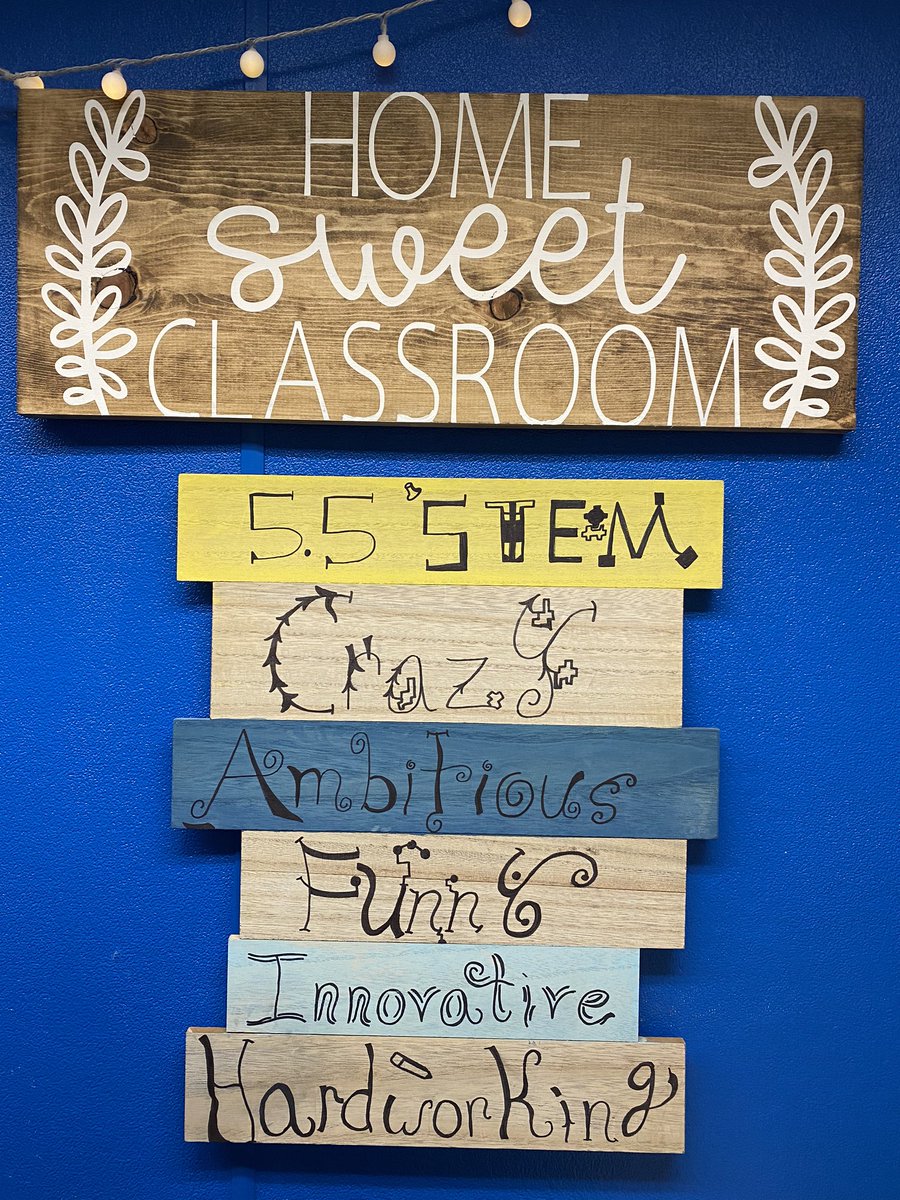 HOME
sweet
CLASSROOM
5.5 STEM
Crazy
Ambitious
Funny
Innovative
Hardworking